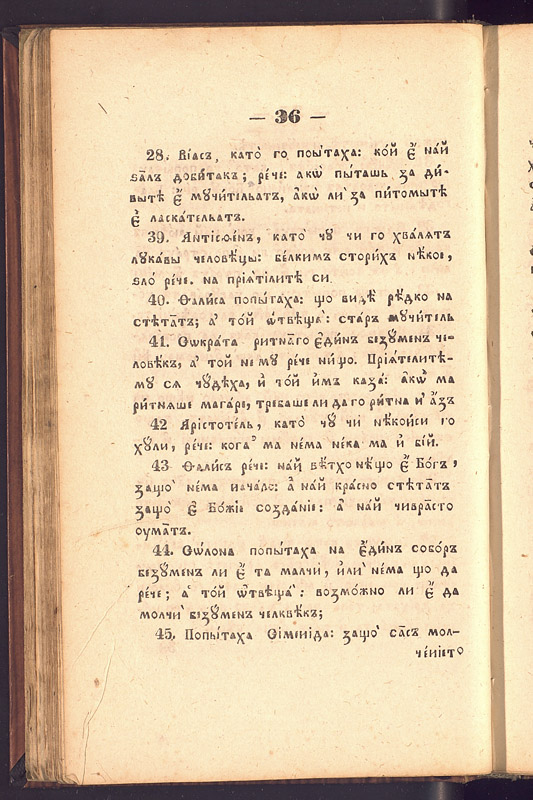 — 36 —
28. Віасъ, като̀ го попы́таха: ко́й є҆̀ на́й
ѕа́лъ доби́такъ; ре́че: акѡ̀ пы́ташь за ди́-
вытѣ є҆̀ мꙋчи́тельатъ, а҆́кѡ ли̏ за пи́томытѣ
є҆̀ ласка́тельатъ.
39. Антісѳе́нъ, като̀ чꙋ̀ чи го хва́лятъ
лꙋка́вы человѣ́цы: бе́лкимъ стори́хъ нѣ́кое,
ѕло́ ре́че. на прія́тілитѣ си
40. Ѳали́са попы́таха: що види̏ рѣ́дко на
стѣта́тъ; а̏ то́й ѿвѣща̏: ста́ръ мꙋчи́тель
41. Сѡкра́та ритна̏го є҆ди́нъ безꙋ́менъ че-
ловѣ́къ, а̏ то́й не мꙋ ре́че ни́що. Прія́телитѣ-
мꙋ ся чꙋ́дѣха, и҆ то́й и҆мъ каза̏: а҆́кѡ̀ ма
ри́тняше мага́ре, тре́баше ли да го ри́тна и҆ а҆́зъ
42 Аристоте́ль, като̀ чꙋ̀ чи нѣ́койси го
хꙋ́ли, ре́че: кога̏ ма не́ма не́ка ма и҆ бі́й.
43 Ѳали́съ ре́че: на́й вѣ́тхо нѣ́що є҆̀ Бо́гъ,
защо̏ не́ма нача́ло: а҆ на́й кра́сно стѣта́тъ
защо̀ є҆̀ Бо́жіе созда́ніе: а̏ на́й чивра́сто
ѹма́тъ.
44. Сѡ́лона попы́таха на є҆ди́нъ собо́ръ
безꙋ́менъ ли є҆̀ та малчи̏, и҆ли̏ не́ма що да
ре́че; а̏ то́й ѿвѣща̏: возмо́жно ли є҆̀ да
молчи̏ безꙋ́менъ челквѣ́къ;
45. Попы́таха Сімені́да: защо̏ са́съ мол-
че́нієто